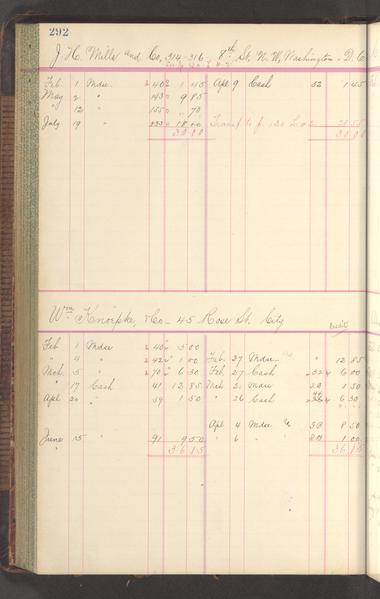 292
J. H. Mills and Co, 314-316 - 8th St. N. W, Washington - D. C
Feb. 1 Mdse 40 1 45 Apl 9 Cash 52 1 45
May 2 " 143 9 85
" 12 " 155 " 70
July 19 " 18 00 Transf to f. 130 L.
30 00 30 00
Wm Knoepke, & Co - 45 Rose St. City
Feb. 1 Mdse 40 5 00
" 4 " 42 1 00 Feb. 27 Mdse " 12 85
Mch 5 " 70 6 30 Feb. 27 Cash 32 6 00
" 17 Cash 41 12 85 Mch 2 Mdse 29 1 50
Apl 20 " 59 1 50 " 26 Cash 6 30
Apl 4 Mdse 8 50
June 15 " 91 9 50 " 6 " 1 00
36 15 36 15